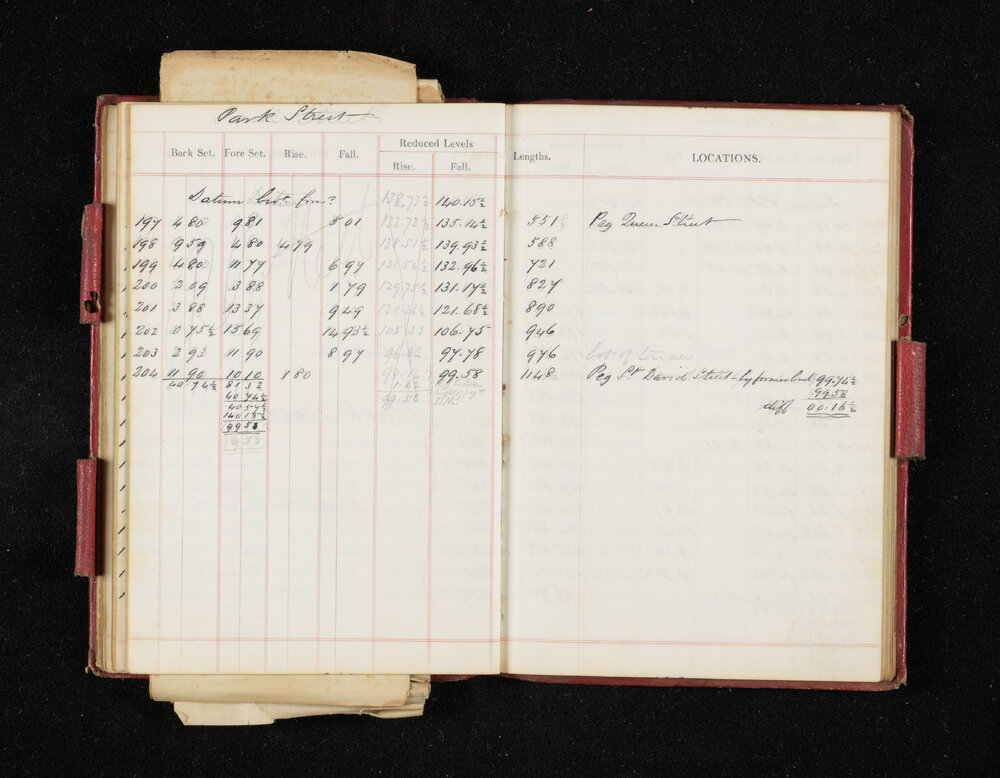 Park Street
Reduced Levels
Back Set. Fore Set. Rise. Fall. Rise. Fall. Lengths. LOCATIONS.
Datum 138.73½ 140.15½
197 4 80 9 81 5 01 133.72½ 135.14½ 551 Peg Queen Street
198 9 59 4 80 4 79 138.51½ 139.93½ 588
199 4 80 11 77 6 97 131.54½ 132.96½ 721
200 2 09 3 88 1 79 129.75½ 131.17½ 827
201 3 88 13 37 9 49 120.26½ 121.68½ 890
202 0 75½ 15 69 14 93½ 105.33 106.75 946
203 2 93 11 90 8 97 96.36 97.78 976 bot of terrace
204 11 90 10 10 1 80 98.16 99.58 1148 Peg St David Street - by former level 99.74½
40 74½ 81 32 1.42 99.58
40 74½ 99.58 D.M. diff 00.16½
40 57½
140 15½
99 58
99 58